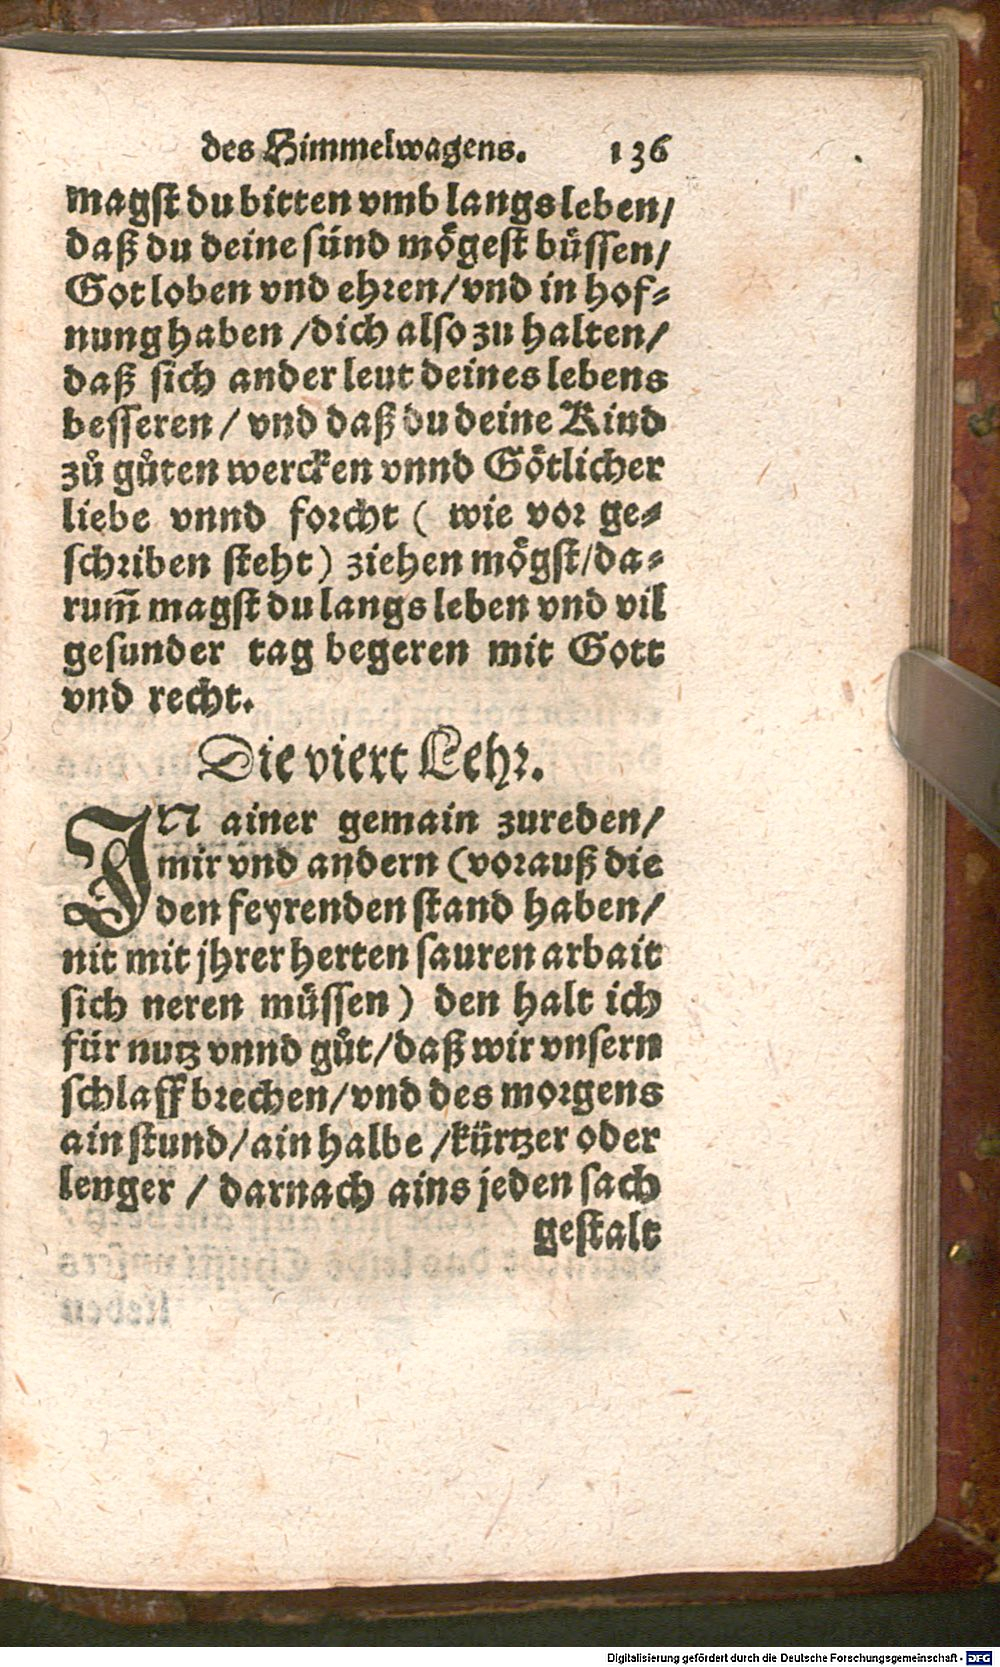 des Himmelwagens. 136
magst du bitten vmb langs leben/
daß du deine sünd mögest büssen/
Got loben vnd ehren/vnd in hof⸗
nung haben /dich also zu halten/
daß sich ander leut deines lebens
besseren / vnd daß du deine Kind
zů gůten wercken vnnd Götlicher
liebe vnnd forcht ( wie vor ge⸗
schriben steht) ziehen mögst/da⸗
rum̃ magst du langs leben vnd vil
gesunder tag begeren mit Gott
vnd recht.
Die viert Lehr.
IN ainer gemain zureden/
mir vnd andern (vorauß die
den feyrenden stand haben/
nit mit jhrer herten sauren arbait
sich neren müssen) den halt ich
für nutz vnnd gůt/daß wir vnsern
schlaff brechen/vnd des morgens
ain stund/ain halbe /kürtzer oder
lenger / darnach ains jeden sach
gestalt
Digitalisierung gefördert durch die Deutsche Forschungsgemeinschaft - DFG